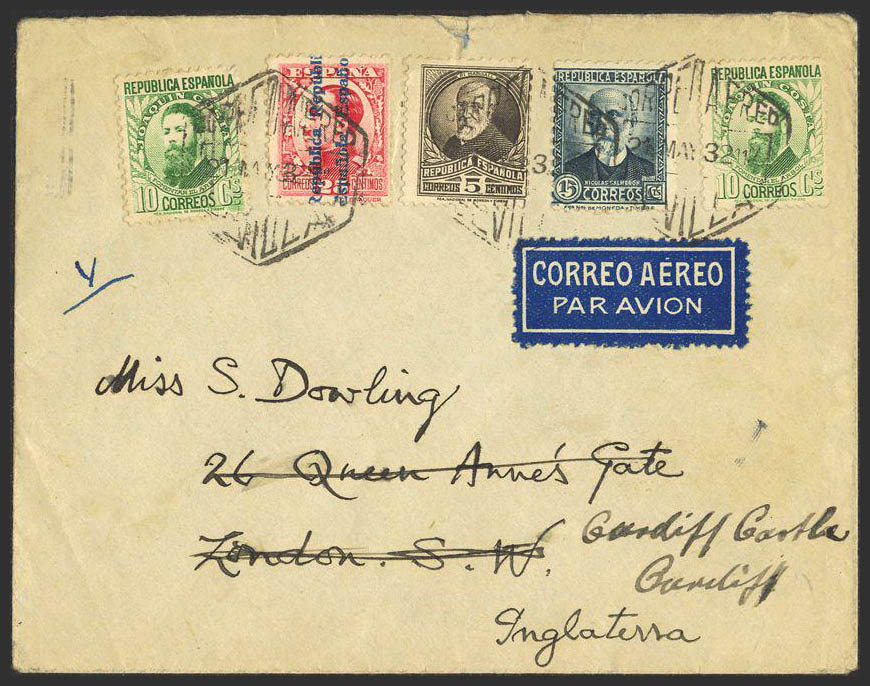 REPUBLICA ESPAÑOLA
JOAQUIN COSTA
10 CTS
CORREOS
ESPAÑA
República Española
CORREOS
CENTIMOS
REPUBLICA ESPAÑOLA
CORREOS 5 CENTIMOS
REPUBLICA ESPAÑOLA
NICOLAS SALMERON
15 CTS
CORREOS
REPUBLICA ESPAÑOLA
JOAQUIN COSTA
10 CTS
CORREOS
CORREO AEREO
21 MAY 32
SEVILLA
CORREO AÉREO
PAR AVION
Miss S. Dowling
26 Queen Anne's Gate
London. S. W.
Cardiff Castle
Cardiff
Inglaterra